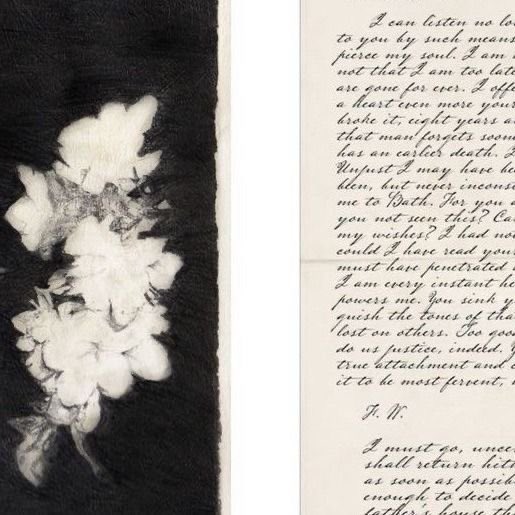 I can listen no lo
to you by such means
pierce my soul. I am h
not that I am too late
are gone for ever. I offe
a heart even more your
broke it, eight years a
that man forgets soon
has an earlier death. I
Unjust I may have be
been, but never incons
me to Bath. For you a
you not seen this? Ca
my wishes? I had no
could I have read your
must have penetrated
I am every instant he
powers me. You sink y
guish the tones of tha
lost on others. Too goo
do us justice, indeed. Y
true attachment and c
it to be most fervent,
F. W.
I must go, unce
shall return hith
as soon as possib
enough to decide
father's house th